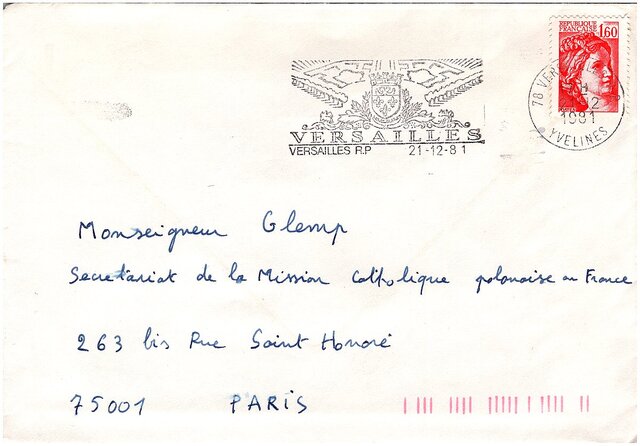 REPUBLIQUE
FRANÇAISE 1,60
VERSAILLES
VERSAILLES R.P 21-12-81
78 VER
1981
YVELINES
Monseigneur Glemp
Secrétariat de la Mission Catholique polonaise en France
263 bis Rue Saint Honoré
75001 PARIS